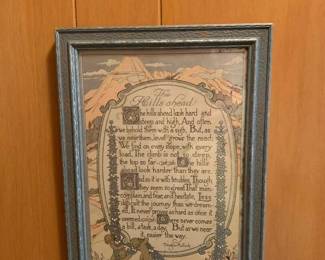 The
Hills ahead
The hills ahead look hard and
steep and high, And often
we behold them with a sigh, But, as
we near them, level grows the road
We find on every slope, with every
load, The climb is not so steep,
the top so far. The hills
ahead look harder than they are.
And so it is with troubles, Though
they seem so great That men
complain, and fear, and hesitate, Less
difficult the journey than we dream-
ed, It never proves as hard as once it
seemed, There never comes
a hill, a task, a day, But as we near
it, easier the way.